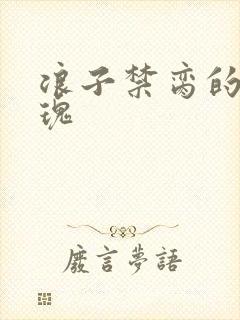 浪子禁脔的
瑰
废言梦語